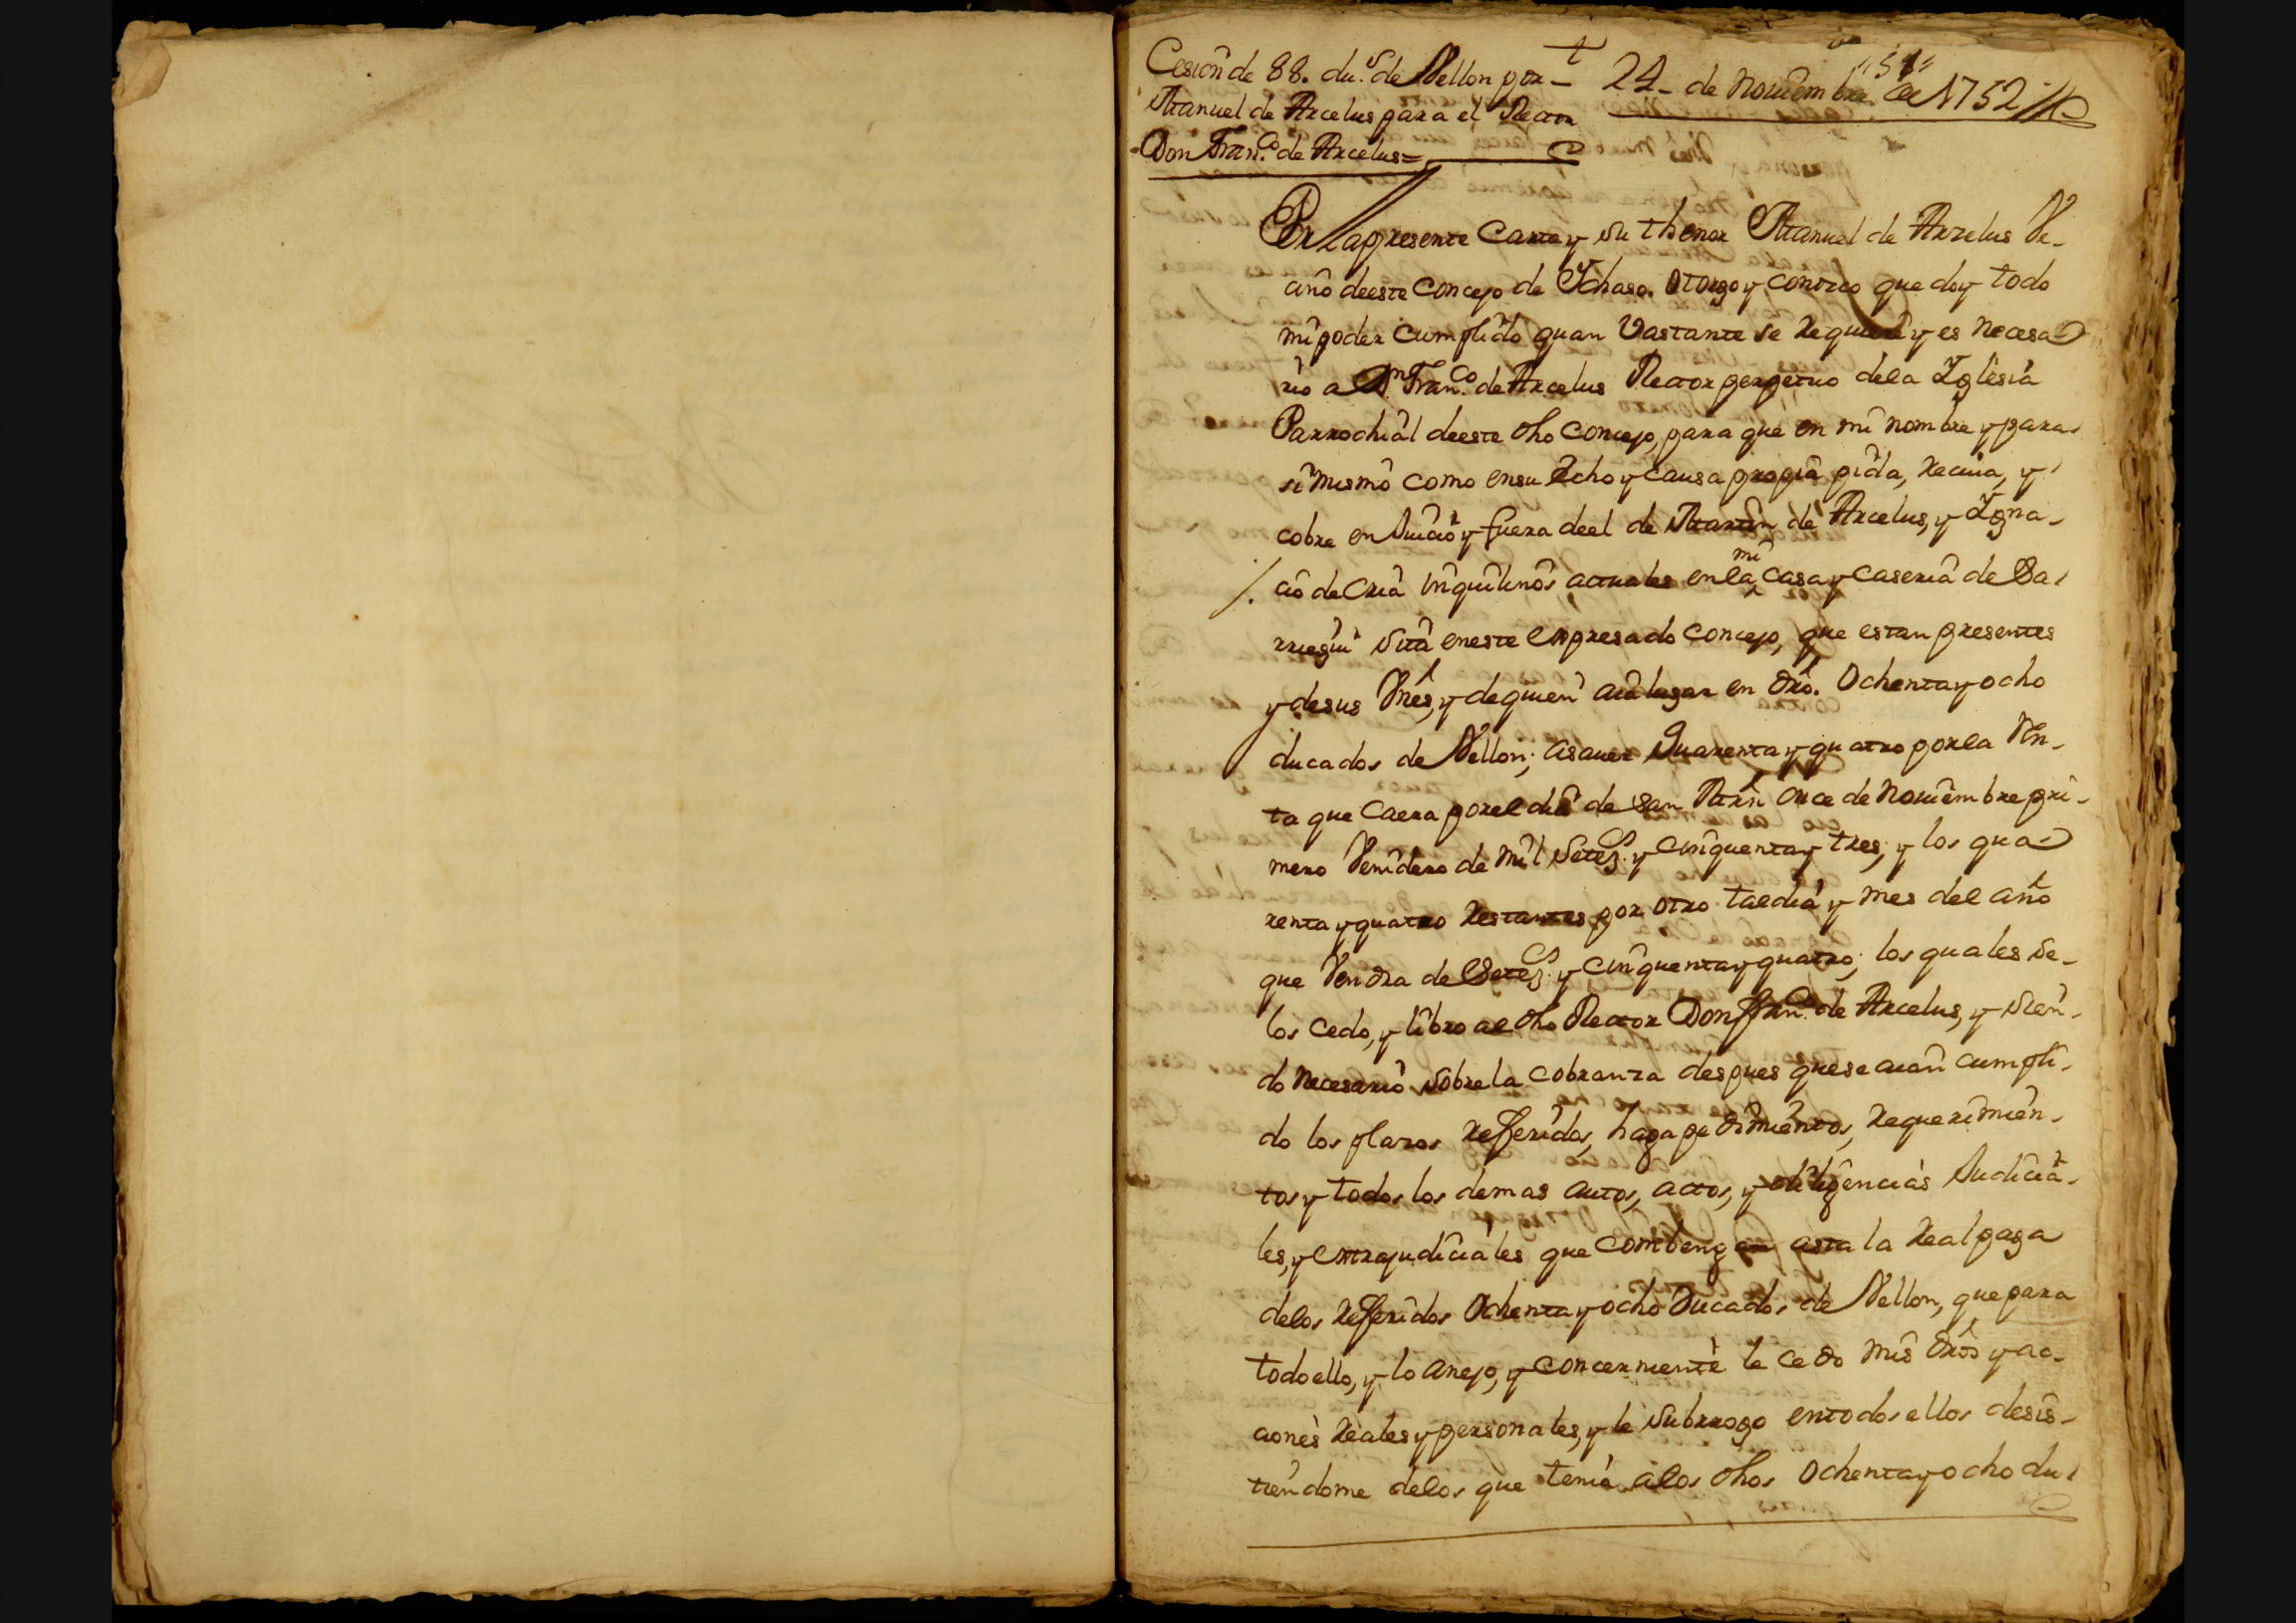 Cesion de 88. du.s de Vellon por
Manuel de Arcelus para el Rector
Don Fran.co de Arcelus=
24 de Nouiembre de 1752
Por la presente Carta y su thenor Manuel de Arzelus Ve-
cino deeste Concejo de Ychaso. otorgo y conozco que doy todo
mi poder cumplido quan Vastante se requiere y es necesa
rio a Dn Fran.co de Arcelus Rector perpetuo dela Yglesia
Parrochial deeste dho Concejo, para que en mi nombre y para
si mismo como ensu echo y causa propia pida, reciua, y
cobre en Juicio y fuera deel de Martin de Arcelus, y Ygna-
cio de Oria inquilinos actuales en la mi casa y caseria de Ba
rriegui sita eneste expresado concejo, que estan presentes
y desus Vnes, y dequien aia lugar en dro. Ochenta y ocho
ducados de Vellon; asauer Quarenta y quatro por la Ren-
ta que Caera porel dia de San Mrn once de Nouiembre pri-
mero Venidero de mil Setezs. y cinquenta y tres, y los qua
renta y quatro restantes por otro tal dia y mes del año
que Vendra de Setezs. y cinquenta y quatro; los quales se-
los cedo, y libro al dho Rector Don ffran.co de Arcelus, y sien-
do necesario sobre la cobranza despues que se aian cumpli-
do los plazos refferidos, haga pedimientos, requerimien-
tos y todos los demas autos, actos, y diligencias Judicia-
les, y extrajudiciales que combengan asta la real paga
delos refferidos Ochenta y ocho Ducados de Vellon, que para
todo ello, y lo anejo, y concerniente le cedo mis dros y ac-
ciones reales y personales, y le subrrogo entodos ellos desis-
tiendome delos que tenia alos dhos Ochenta y ocho du